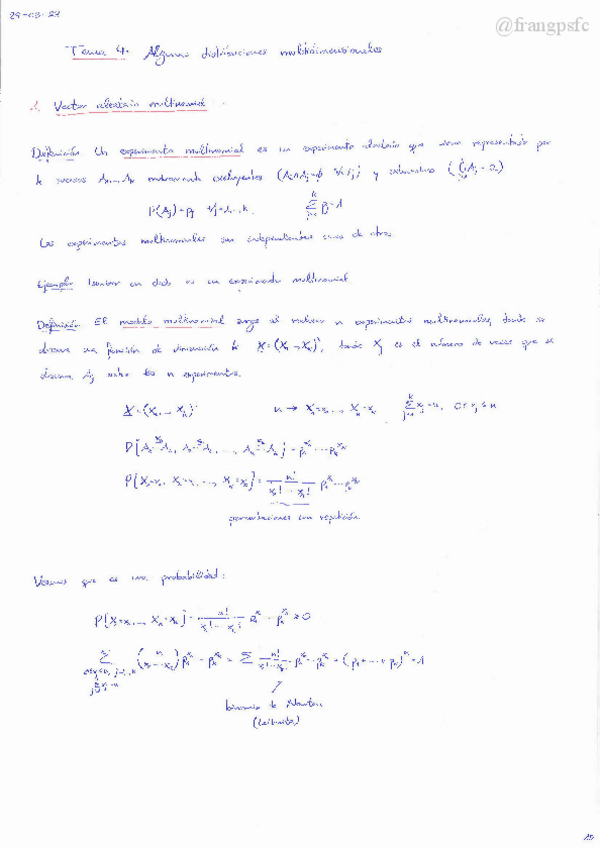 29-03-23
@frangpsfc
Tema 4: Algunas distribuciones multidimensionales
1. Vector aleatorio multinomial
Definición Un experimento multinomial es un experimento aleatorio que viene representado por
k sucesos A₁...Aₖ mutuamente excluyentes (Aᵢ∩Aⱼ=ϕ ∀i≠j) y exhaustivos (⋃Aⱼ=Ω)
P(Aⱼ)=pⱼ ∀j=1...k ∑pⱼ=1
Los experimentos multinomiales son independientes unos de otros.
Ejemplo Lanzar un dado es un experimento multinomial
Definición El modelo multinomial surge al realizar n experimentos multinomiales, donde se
observa una función de dimensión k X=(X₁...Xₖ)', donde Xⱼ es el número de veces que se
observa Aⱼ entre los n experimentos.
X=(X₁,...,Xₖ)' n → X₁=x₁,..., Xₖ=xₖ ∑xⱼ=n, 0≤xⱼ≤n
P[A₁...A₁, A₂...A₂, ..., Aₖ...Aₖ]=p₁^x₁...pₖ^xₖ
P[X₁=x₁, X₂=x₂,..., Xₖ=xₖ]=n!/(x₁!...xₖ!) p₁^x₁...pₖ^xₖ
permutaciones con repetición
Veamos que es una probabilidad:
P[X₁=x₁,..., Xₖ=xₖ]=n!/(x₁!...xₖ!) p₁^x₁...pₖ^xₖ ≥0
∑ (n x₁...xₖ) p₁^x₁...pₖ^xₖ = ∑ n!/(x₁!...xₖ!) p₁^x₁...pₖ^xₖ = (p₁+...+pₖ)ⁿ=1
binomio de Newton
(Leibnitz)